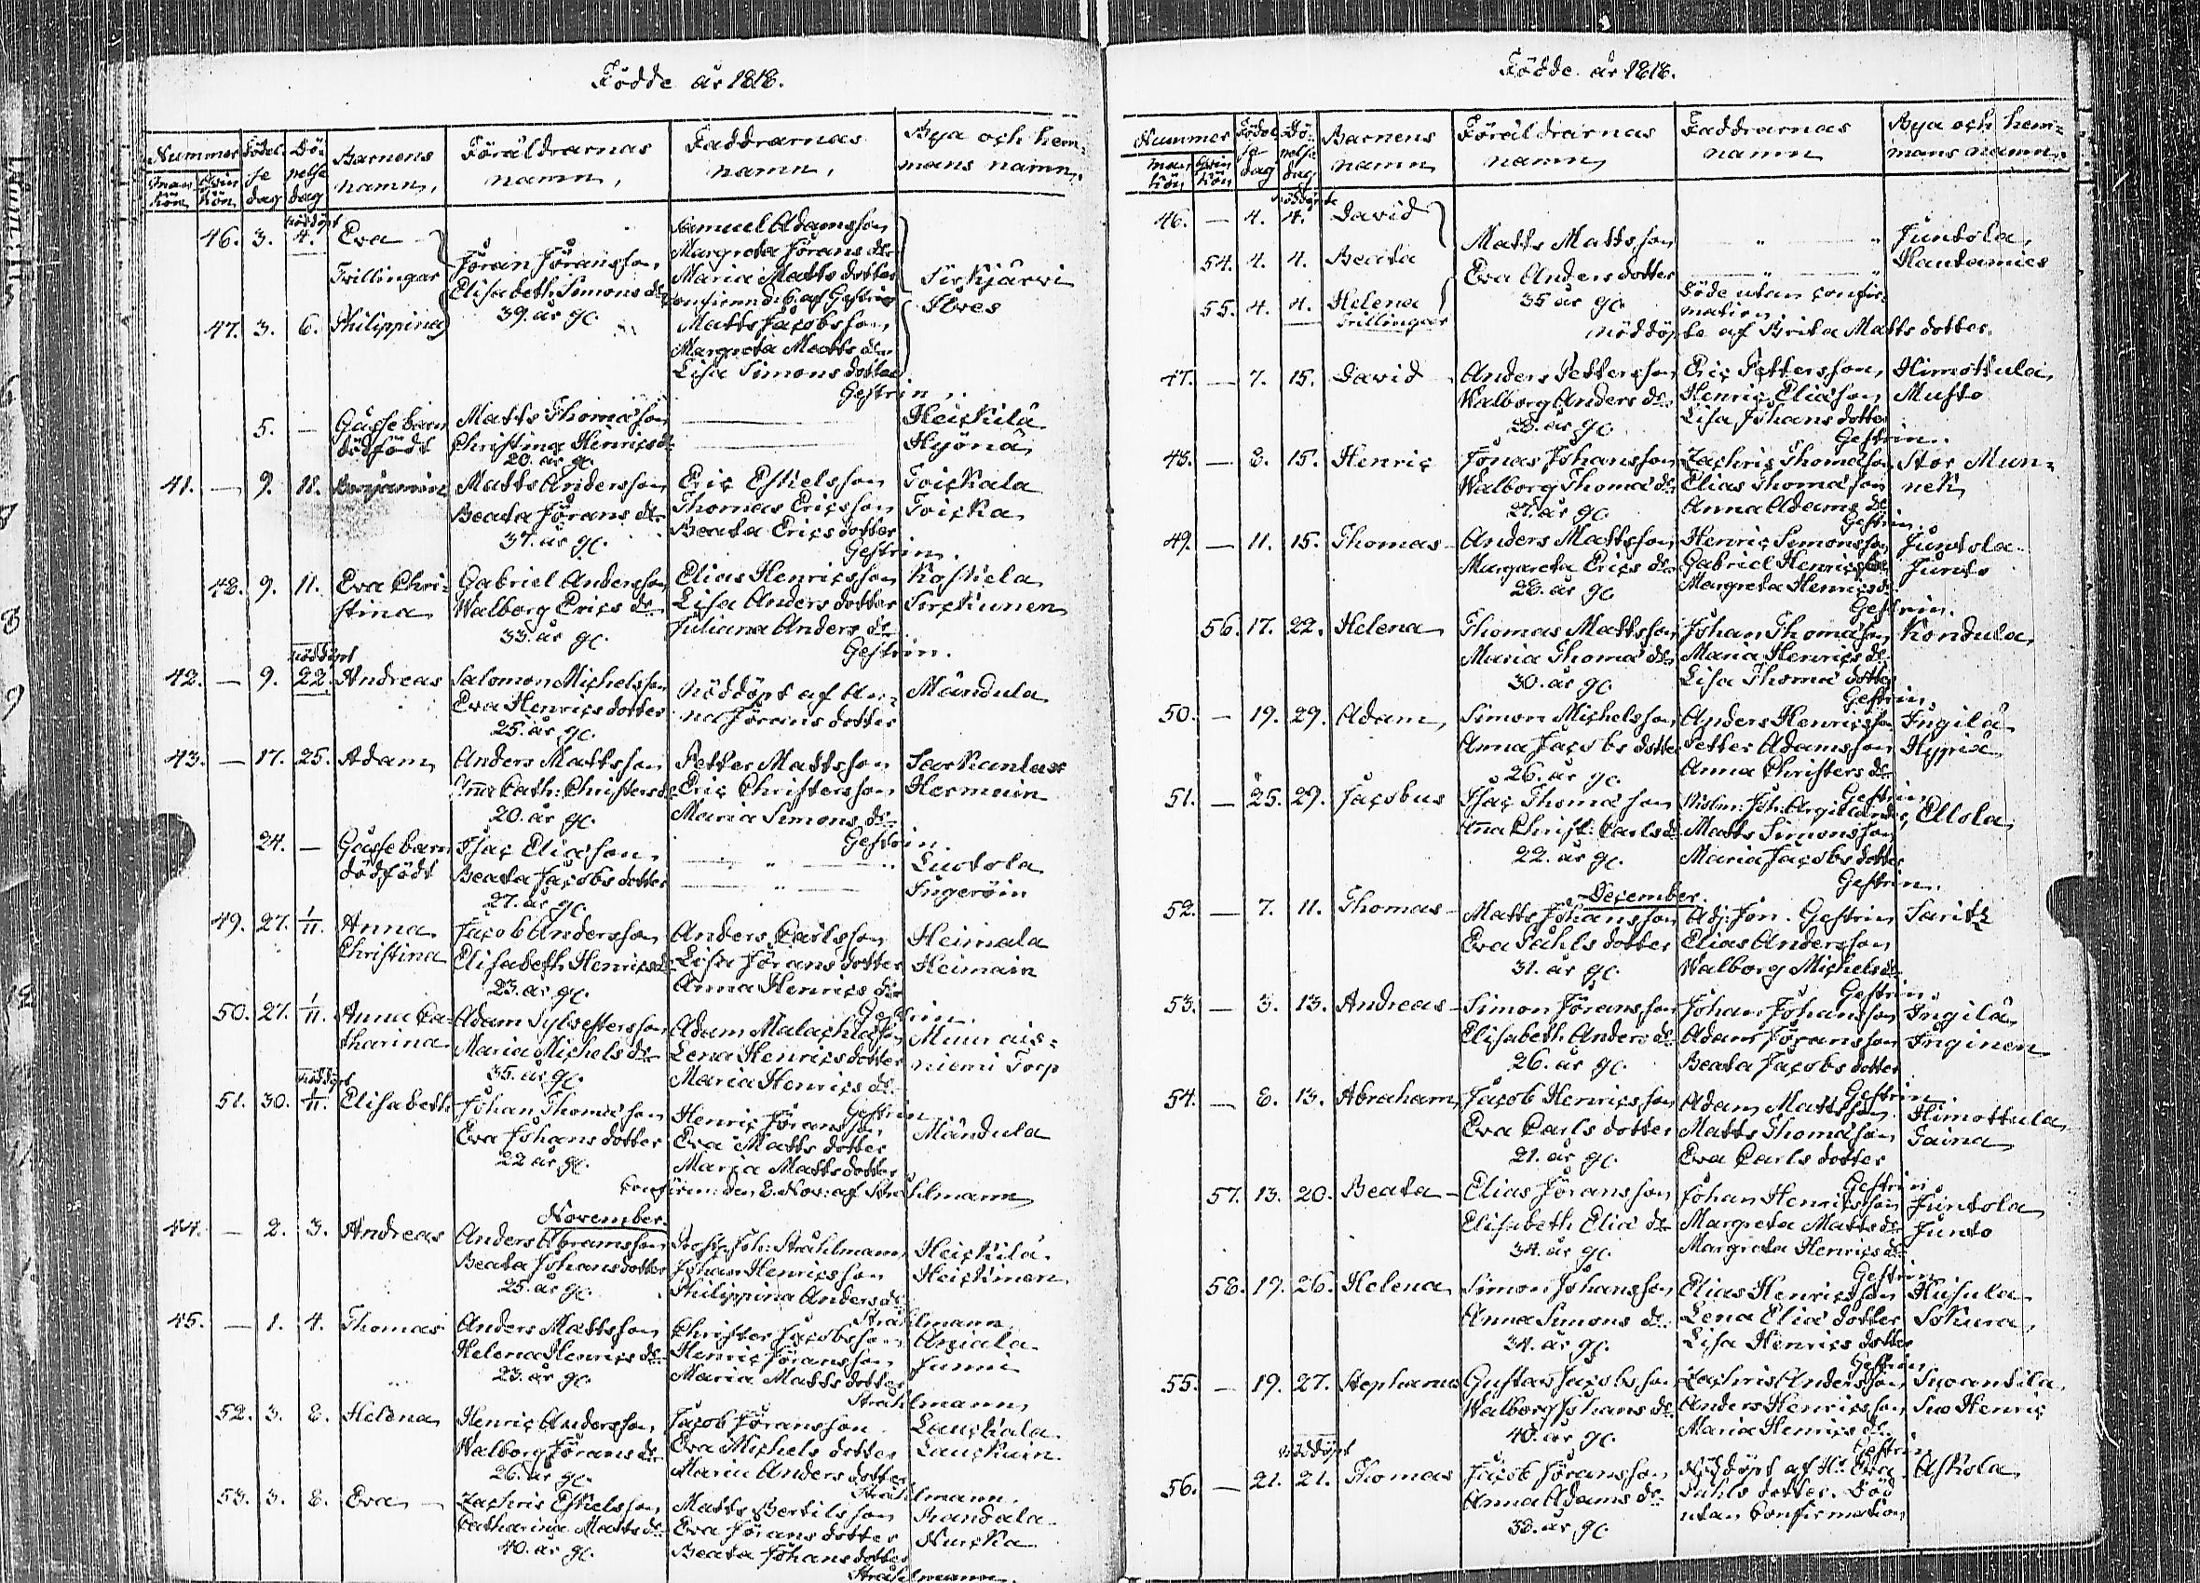 Födde år 1818.
Nummer Födel- Dö- Barnens Föräldrarnas Faddrarnas Bya och hem-
man qvin se pelse namn, namn, namn, mans namn,
kön kön dag dag
nöddöpt
46. 3. 4. Eva Samuel Adamsson
Margreta Jörans dr
Trillingar Jöran Jöransson Maria Matts dotter Sirkjärvi
Elisabeth Simons dr af Gestrin Ilves
39. år gl.
47. 3. 6. Philippina Matts Jacobsson
Margreta Matts dr
Lisa Simons dotter
Gestrin
5. — Gåssebarn Matts Thomasson Heickilä
dödfödt Christina Henrics dr Hyönä
20. år gl.
41. — 9. 11. Benjamin Matts Andersson Eric Eskelsson Toickala
Beata Jörans dr Thomas Ericsson Toicka
37. år gl. Beata Erics dotter
Gestrin.
48. 9. 11. Eva Chri- Gabriel Andersson Elias Henricsson Kaskela
stina Walborg Erics dr Lisa Anders dotter
33. år gl. Juliana Anders dr
Gestrin.
nöddöpt
42. — 9. 22. Andreas Salomon Michelsson Nöddöpt af An- Mändula
Eva Henrics dotter na Jörans dotter
25. år gl.
43. — 17. 25. Adam Anders Mattsson Petter Mattsson
Anna Cath: Christers dr Eric Christersson Hermunen
20. år gl. Maria Simons dr
Gestrin.
24. — Gåssebarn Isac Eliasson — " — Luotola
dödfödt Beata Jacobs dotter — " — Ingeröin
27. år gl.
49. 27. 1/11. Anna Jacob Andersson Anders Carlsson Heimala
Christina Elisabeth Henrics dr Lisa Jörans dotter Heimain
23. år gl. Anna Henrics dr
Gestrin.
50. 27. 1/11. Anna Ca- Adam Sylvestersson Adam Malachiasson
tharina Maria Michels dr Lena Henrics dotter niemi Torp
35. år gl. Maria Henrics dr
nöddöpt Gestrin
51. 30. 1/11. Elisabeth Johan Thomasson Henric Jöransson
Eva Johans dotter Eva Matts dotter Mändula
22 år gl. Maria Matts dotter
Confirm: den 8. Nov: af Strahlmann
November.
44. — 2. 3. Andreas Anders Abramsson Prosten Joh: Stråhlmann Heickilä
Beata Johans dotter Johan Henricsson Heickinen
25. år gl. Philippina Anders dr
Strahlmann.
45. — 1. 4. Thomas Anders Mattsson Christer Jacobsson Aniala
Helena Henrics dr Henric Jöransson Junni
23. år gl. Maria Matts dotter
Strahlmann
52. 3. 8. Helena Henric Andersson Jacob Jöransson Lauckala
Walborg Jörans dr Eva Michels dotter Lauckain
26. år gl. Maria Anders dotter
Strahlmann.
53. 3. 8. Eva — Zachris Eskelsson Matts Bertilsson Kandala
Catharina Matts dr Eva Jörans dotter Nurcka
40. år gl. Beata Johans dotter
Strahlmann.
Födde år 1818.
Nummer Födel- Dö- Barnens Föräldrarnas Faddrarnas Bya och hem-
man qvin se pelse namn namn namn mans namn.
kön kön dag dag
nöddöpte
46. — 4. 4. David
Matts Mattsson — " — " Juntola,
54. 4. 4. Beata Eva Anders dotter — " — " Rautamies
55. 4. 4. Helena 35 år gl. döde utan confir-
Trillingar mation.
nöddöpte af Brita Matts dotter.
47. — 7. 15. David Anders Pettersson Eric Pettersson, Himottula,
Walborg Anders dr Henric Eliasson Musto
38. år gl. Lisa Johans dotter
Gestrin.
48. — 8. 15. Henric Jonas Johansson Zachris Thomasson Stor Mun-
Walborg Thomä dr Elias Thomasson neli
27. år gl. Anna Adams dr
Gestrin
49. — 11. 15. Thomas Anders Mattsson Henric Simonsson Juntola
Margareta Erics dr Gabriel Henricsson Junto
28. år gl. Margreta Henrics dr
Gestrin.
56. 17. 22. Helena Thomas Mattsson Johan Thomasson Kondula,
Maria Thomä dr Maria Henrics dr
30. år gl. Lisa Thomä dotter
Gestrin
50. — 19. 29. Adam, Simon Michelsson Anders Henricsson Ingilä
Anna Jacobs dotter Petter Adamsson Hypiä
26. år gl. Anna Christers dr
Gestrin
51. — 25. 29. Jacobus Isac Thomasson Ellola
Anna Christ: Carls dr Matts Simonsson
22. år gl. Maria Jacobs dotter
Gestrin.
December.
52. — 7. 11. Thomas Matts Johansson Adj: Jon. Gestrin Saritz
Eva Påhls dotter Elias Andersson
31. år gl. Walborg Michels dr
Gestrin.
53. — 3. 13. Andreas Simon Jöransson Johan Johansson Ingilä
Elisabeth Anders dr Adam Jöransson Inginen
26. år gl. Beata Jacobs dotter
Gestrin.
54. — 8. 13. Abraham, Jacob Henricsson Adam Mattsson Himottula,
Eva Carls dotter Matts Thomasson Taina
21. år gl. Eva Carls dotter
Gestrin.
57. 13. 20. Beata Elias Jöransson Johan Henricsson Juntola
Elisabeth Eliä dr Margreta Matts dr Junto
34. år gl. Margreta Henrics dr
Gestrin
58. 19. 26. Helena Simon Johansson Elias Henricsson Husula
Anna Simons dr Lena Eliä dotter Sokura,
34. år gl. Lisa Henrics dotter
Gestrin
55. — 19. 27. Stephanus Gustav Jacobsson Zachris Andersson Suoantila,
Walborg Johans dr Anders Henricsson Suo Henric
40. år gl. Maria Henrics dr
nöddöpt Gestrin
56. — 21. 21. Thomas Jacob Jöransson Nöddöpt af H: Eva Askola
Anna Adams dr Påhls dotter. Död
38. år gl. utan Confirmation